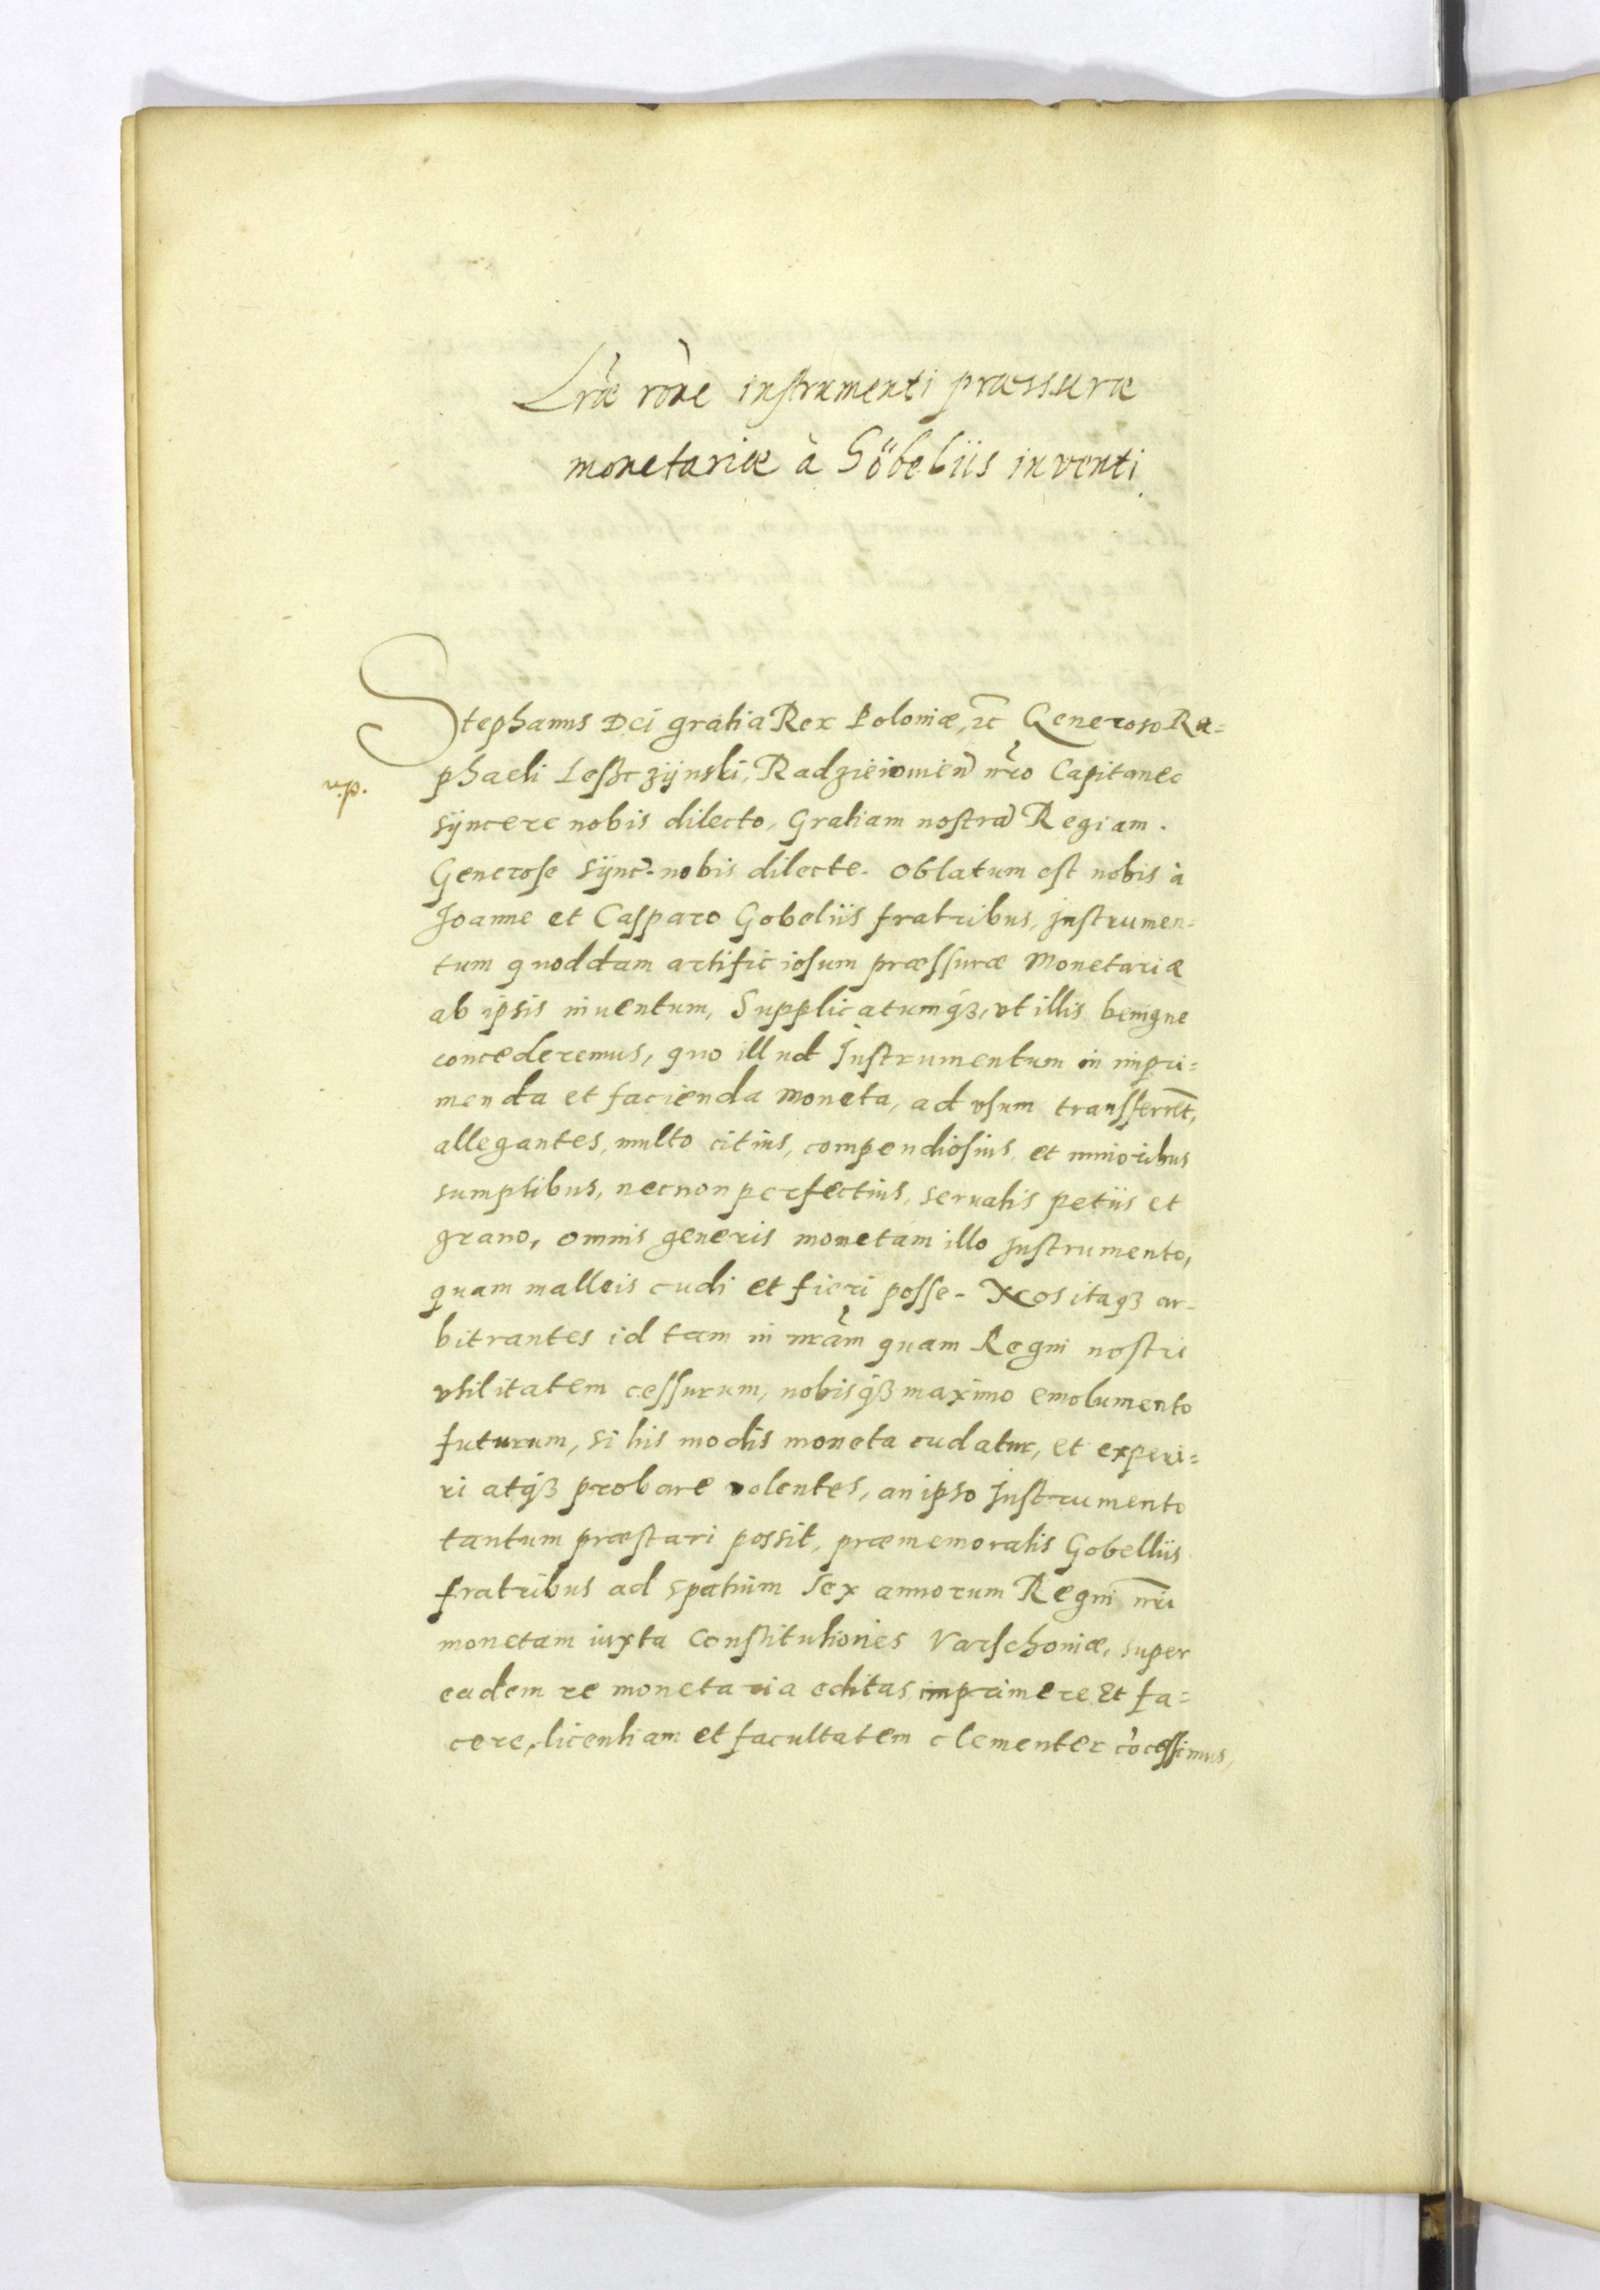 Lr̃æ rõne instrumenti præssuræ
monetariæ à Göbeliis inventi
Stephanus Dei gratia Rex Poloniæ, ꝛc̃ Generoso Ra-
phaeli Lesßczÿnski, Radzieiowien̄ nr̃o Capitaneo
sÿncere nobis dilecto, Gratiam nostrã Regiam.
Generose sÿnc̃. nobis dilecte. Oblatum est nobis à
Joanne et Casparo Gobeliis fratribus, Instrumen-
tum quoddam artificiosum præssuræ Monetariæ
ab ipsis inuentum, Supplicatumqꝫ, vt illis benigne
concederemus, quo illud Instrumentum in impri-
menda et facienda moneta, ad vsum transferrēt,
allegantes, multo citius, compendiosius, et minoribus
sumptibus, necnon perfectius, seruatis petiis et
grano, omnis generis monetam illo Instrumento,
quam malleis cudi et fieri posse. Nos itaqꝫ ar-
bitrantes id tam in nr̃am quam Regni nostri
vtilitatem cessurum, nobisqꝫ maximo emolumento
futurum, si his modis moneta cudatur, et experi-
ri atqꝫ probare volentes, an ipso Instrumento
tantum præstari possit, præmemoratis Gobelliis
fratribus ad spatium sex annorum Regni nr̃i
monetam iuxta Constitutiones Varschoniæ, super
eadem re monetaria editas imprimere et fa-
cere, licentiam et facultatem clementer cõcessimus,